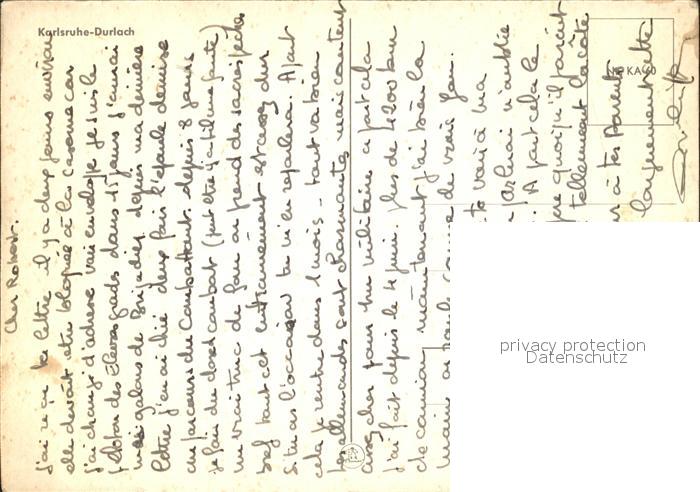 Karlsruhe-Durlach
Cher Robert.
J'ai reçu ta lettre il y a deux jours environ
elle devait être bloquée à la caserne car
j'ai changé d'adresse voir enveloppe je suis le
peloton des élèves gradés dans 15 jours j'aurai
mes galons de Brigadier depuis ma dernière
lettre j'en ai chié deux fois l'épaule démise
au parcours du combattant depuis 8 jours
je fais du close combat (peut être y a-t-il une faute)
un vrai truc de fou on prend des sacrés pectes
bref tout cet entraînement est assez dur
Si tu as l'occasion tu m'en reparlera. A part
cela je rentre dans 1 mois - tout va bien
les allemandes sont charmantes mais coûtent
assez cher pour un militaire à part cela
j'ai fait depuis le 4 juin plus de 4200 km
de camion maintenant j'ai bien la
main on roule comme de vrais fous.
vais à ma
n'oublie
A part cela le
quoiqu'il parait
tellement la côte
à tes Parents
longuement cette
privacy protection
Datenschutz